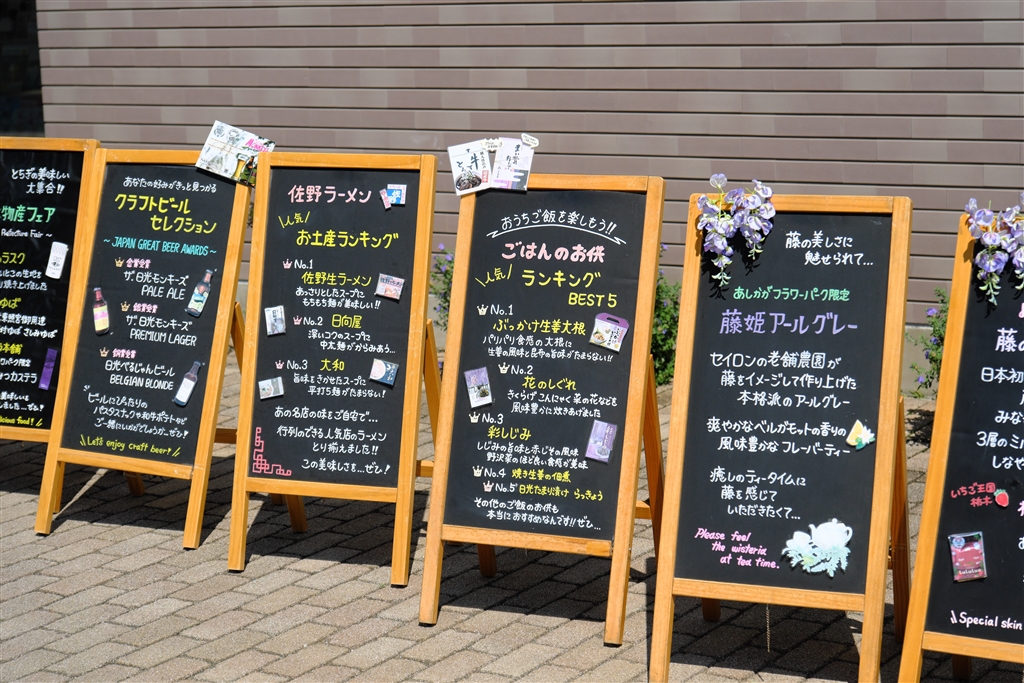 とちぎの美味しい
大集合!!
物産フェア
Prefecture Fair ~
ラスク
ゆば
あなたの好みがきっと見つかる
クラフトビール
セレクション
~ JAPAN GREAT BEER AWARDS ~
金賞受賞
ザ.日光モンキーズ
PALE ALE
銀賞受賞
ザ.日光モンキーズ
PREMIUM LAGER
銅賞受賞
日光べるじゃんビール
BELGIAN BLONDE
ビールにぴったりの
パスタスナックや和牛ポテトなど
ご一緒にいかがでしょうか...ぜひ!
Let's enjoy craft beer!!
佐野ラーメン
人気
お土産ランキング
No.1
佐野生ラーメン
あっさりとしたスープに
もちもち麺が美味しい!!
No.2 日向屋
深いコクのスープに
中太麺がからみあう...
No.3 大和
旨味をきかせたスープに
平打ち麺がたまらない!
あの名店の味をご自宅で...
行列のできる人気店のラーメン
とり揃えました!!
この美味しさ...ぜひ!
おうちご飯を楽しもう!!
ごはんのお供
人気
ランキング
BEST5
No.1
ぶっかけ生姜大根
パリパリ食感の大根に
生姜の風味と昆布の旨味がたまらない!!
No.2
花のしぐれ
きくらげ こんにゃく 菜の花などを
風味豊かに炊きあげました
No.3
彩しじみ
しじみの旨味と赤じその風味
野沢菜のほど良い食感が美味
No.4 焼き生姜の佃煮
No.5 日光たまり漬け らっきょう
その他のご飯のお供も
本当におすすめなんです!!ぜひ...
藤の美しさに
魅せられて...
あしかがフラワーパーク限定
藤姫アールグレー
セイロンの老舗農園が
藤をイメージして作り上げた
本格派のアールグレー
爽やかなベルガモットの香りの
風味豊かな フレーバーティー
癒しのティータイムに
藤を感じて
いただきたくて...
Please feel
the wisteria
at tea time.
藤の
日本初
みな
3層のミ
しなや
いちご王国
栃木
Special skin